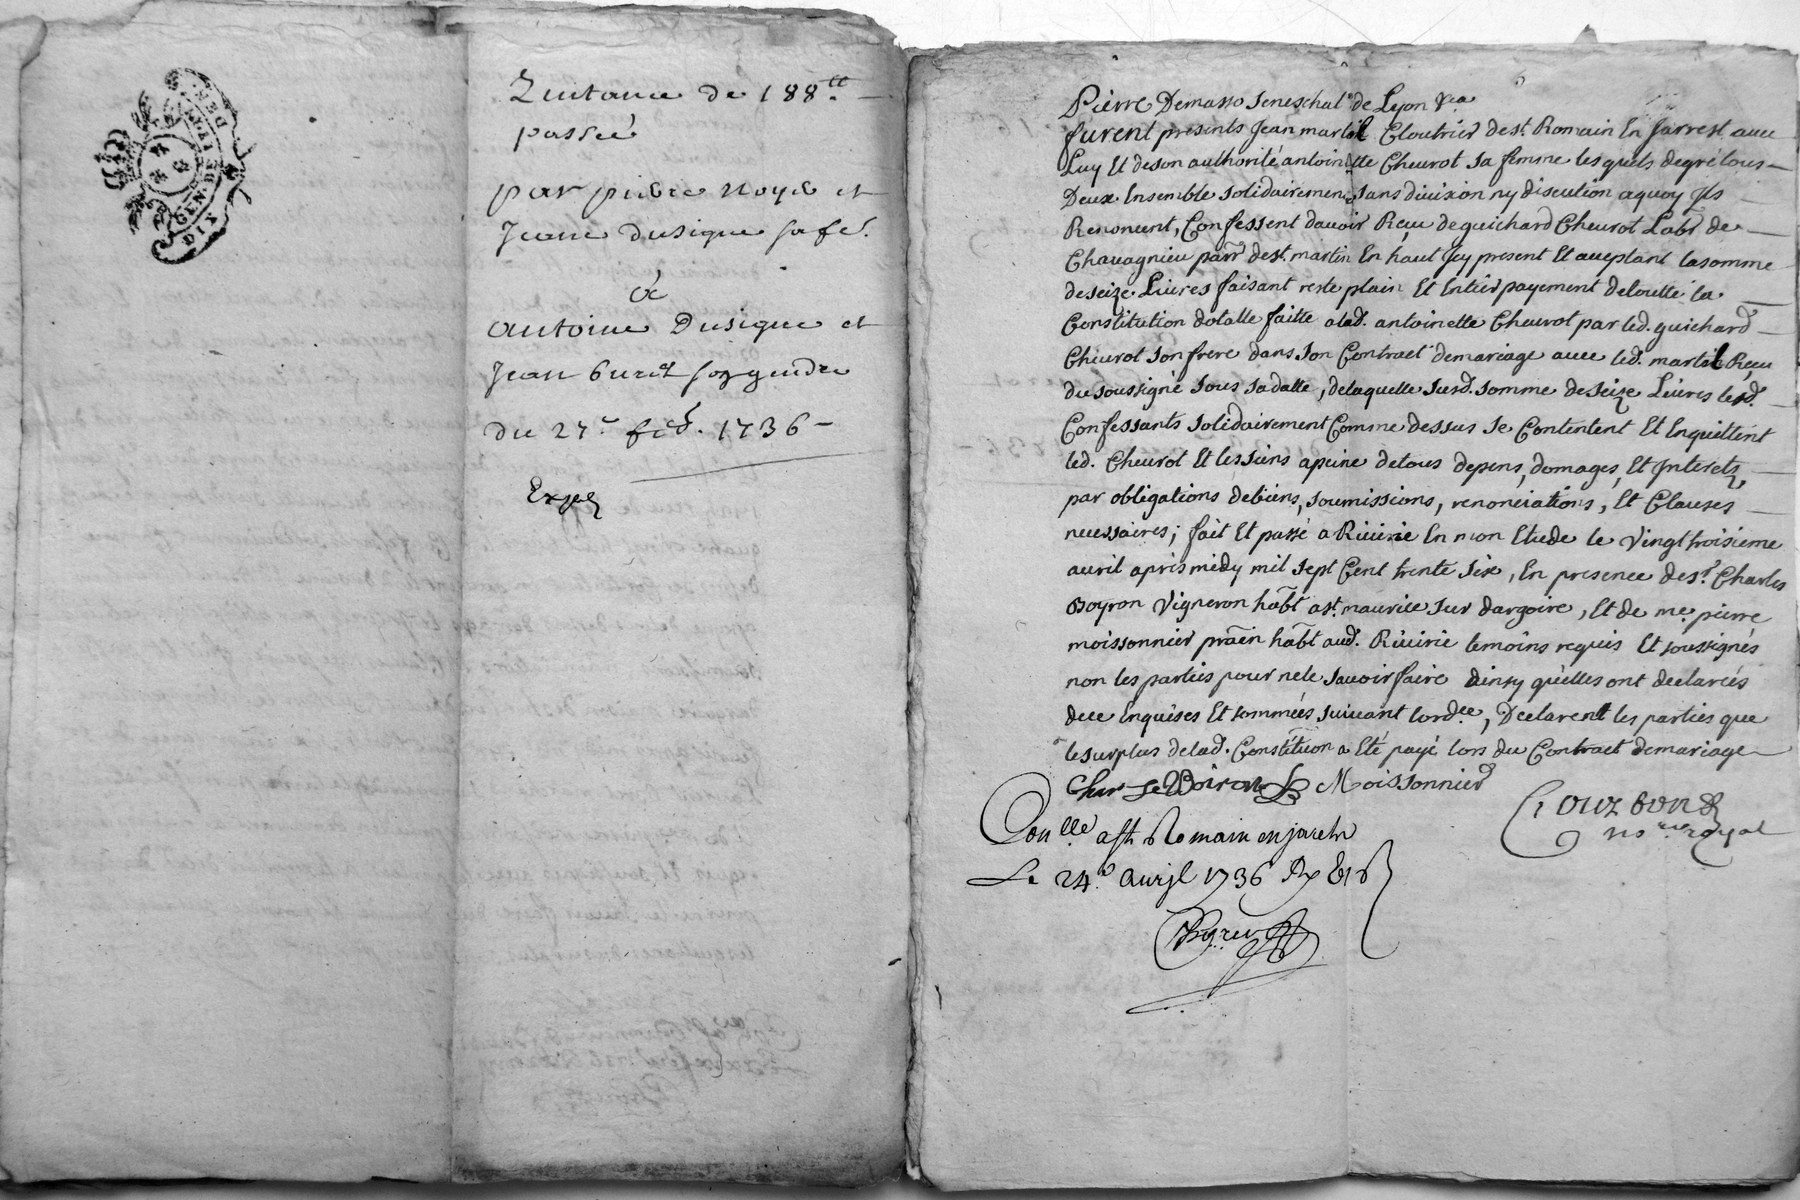 GEN. DE
DIX DEN.
Quittance de 188.tt
passée
par pierre Noyel et
Jeane dusigne sa fe.
à
antoine Dusigne et
Jean buret son gendre
du 27.e feb. 1736 –
Exped
Pierre Demasso seneschal de Lyon &ca
furent presents Jean martel Cloutrier de st. Romain En Jarrest avec
Luy Et de son authorité antoinette Cheurot sa femme lesquels degré tous –
Deux Ensemble solidairement sans division ny discution aquoy Ils
Renoncent, Confessent davoir Reçu de guichard Cheurot Labr de –
Chavagnieu parr dest. martin En haut Icy present Et acceptant la somme
de seize Livres faisant reste plain Et Entier payement de toutte la
Constitution dotalle faitte alad. antoinette Cheurot par led. guichard –
Cheurot son frere dans son Contract de mariage avec led. martel Reçu
du soussigné sous sa datte, de laquelle susd. somme de seize Livres lesd.
Confessants solidairement Comme dessus se Contentent Et Enquittent
led. Cheurot Et les siens apeine de tous depens, domages, Et Interets,
par obligations de biens, soumissions, renonciations, Et Clauses
necessaires; fait Et passé a Riverie En mon Etude le vingt troisieme
avril apres midy mil sept Cent trente six, En presence de sr. Charles
Boyron Vigneron habt ast. maurice sur dargoire, Et de me. pierre
moissonnier praẽn habt aud. Riverie temoins requis Et soussignés
non les parties pour ne le savoir faire ainsy qu'elles ont declarées
dece Enquises Et sommées suivant lordce, Declarent les parties que
le surplus de lad. Constitution a Eté payé lors du Contract de mariage
Charle Boiron Moissonnier
Crouzbon
no.re royal
Conlle a st Romain en jarets
Le 24.e avril 1736